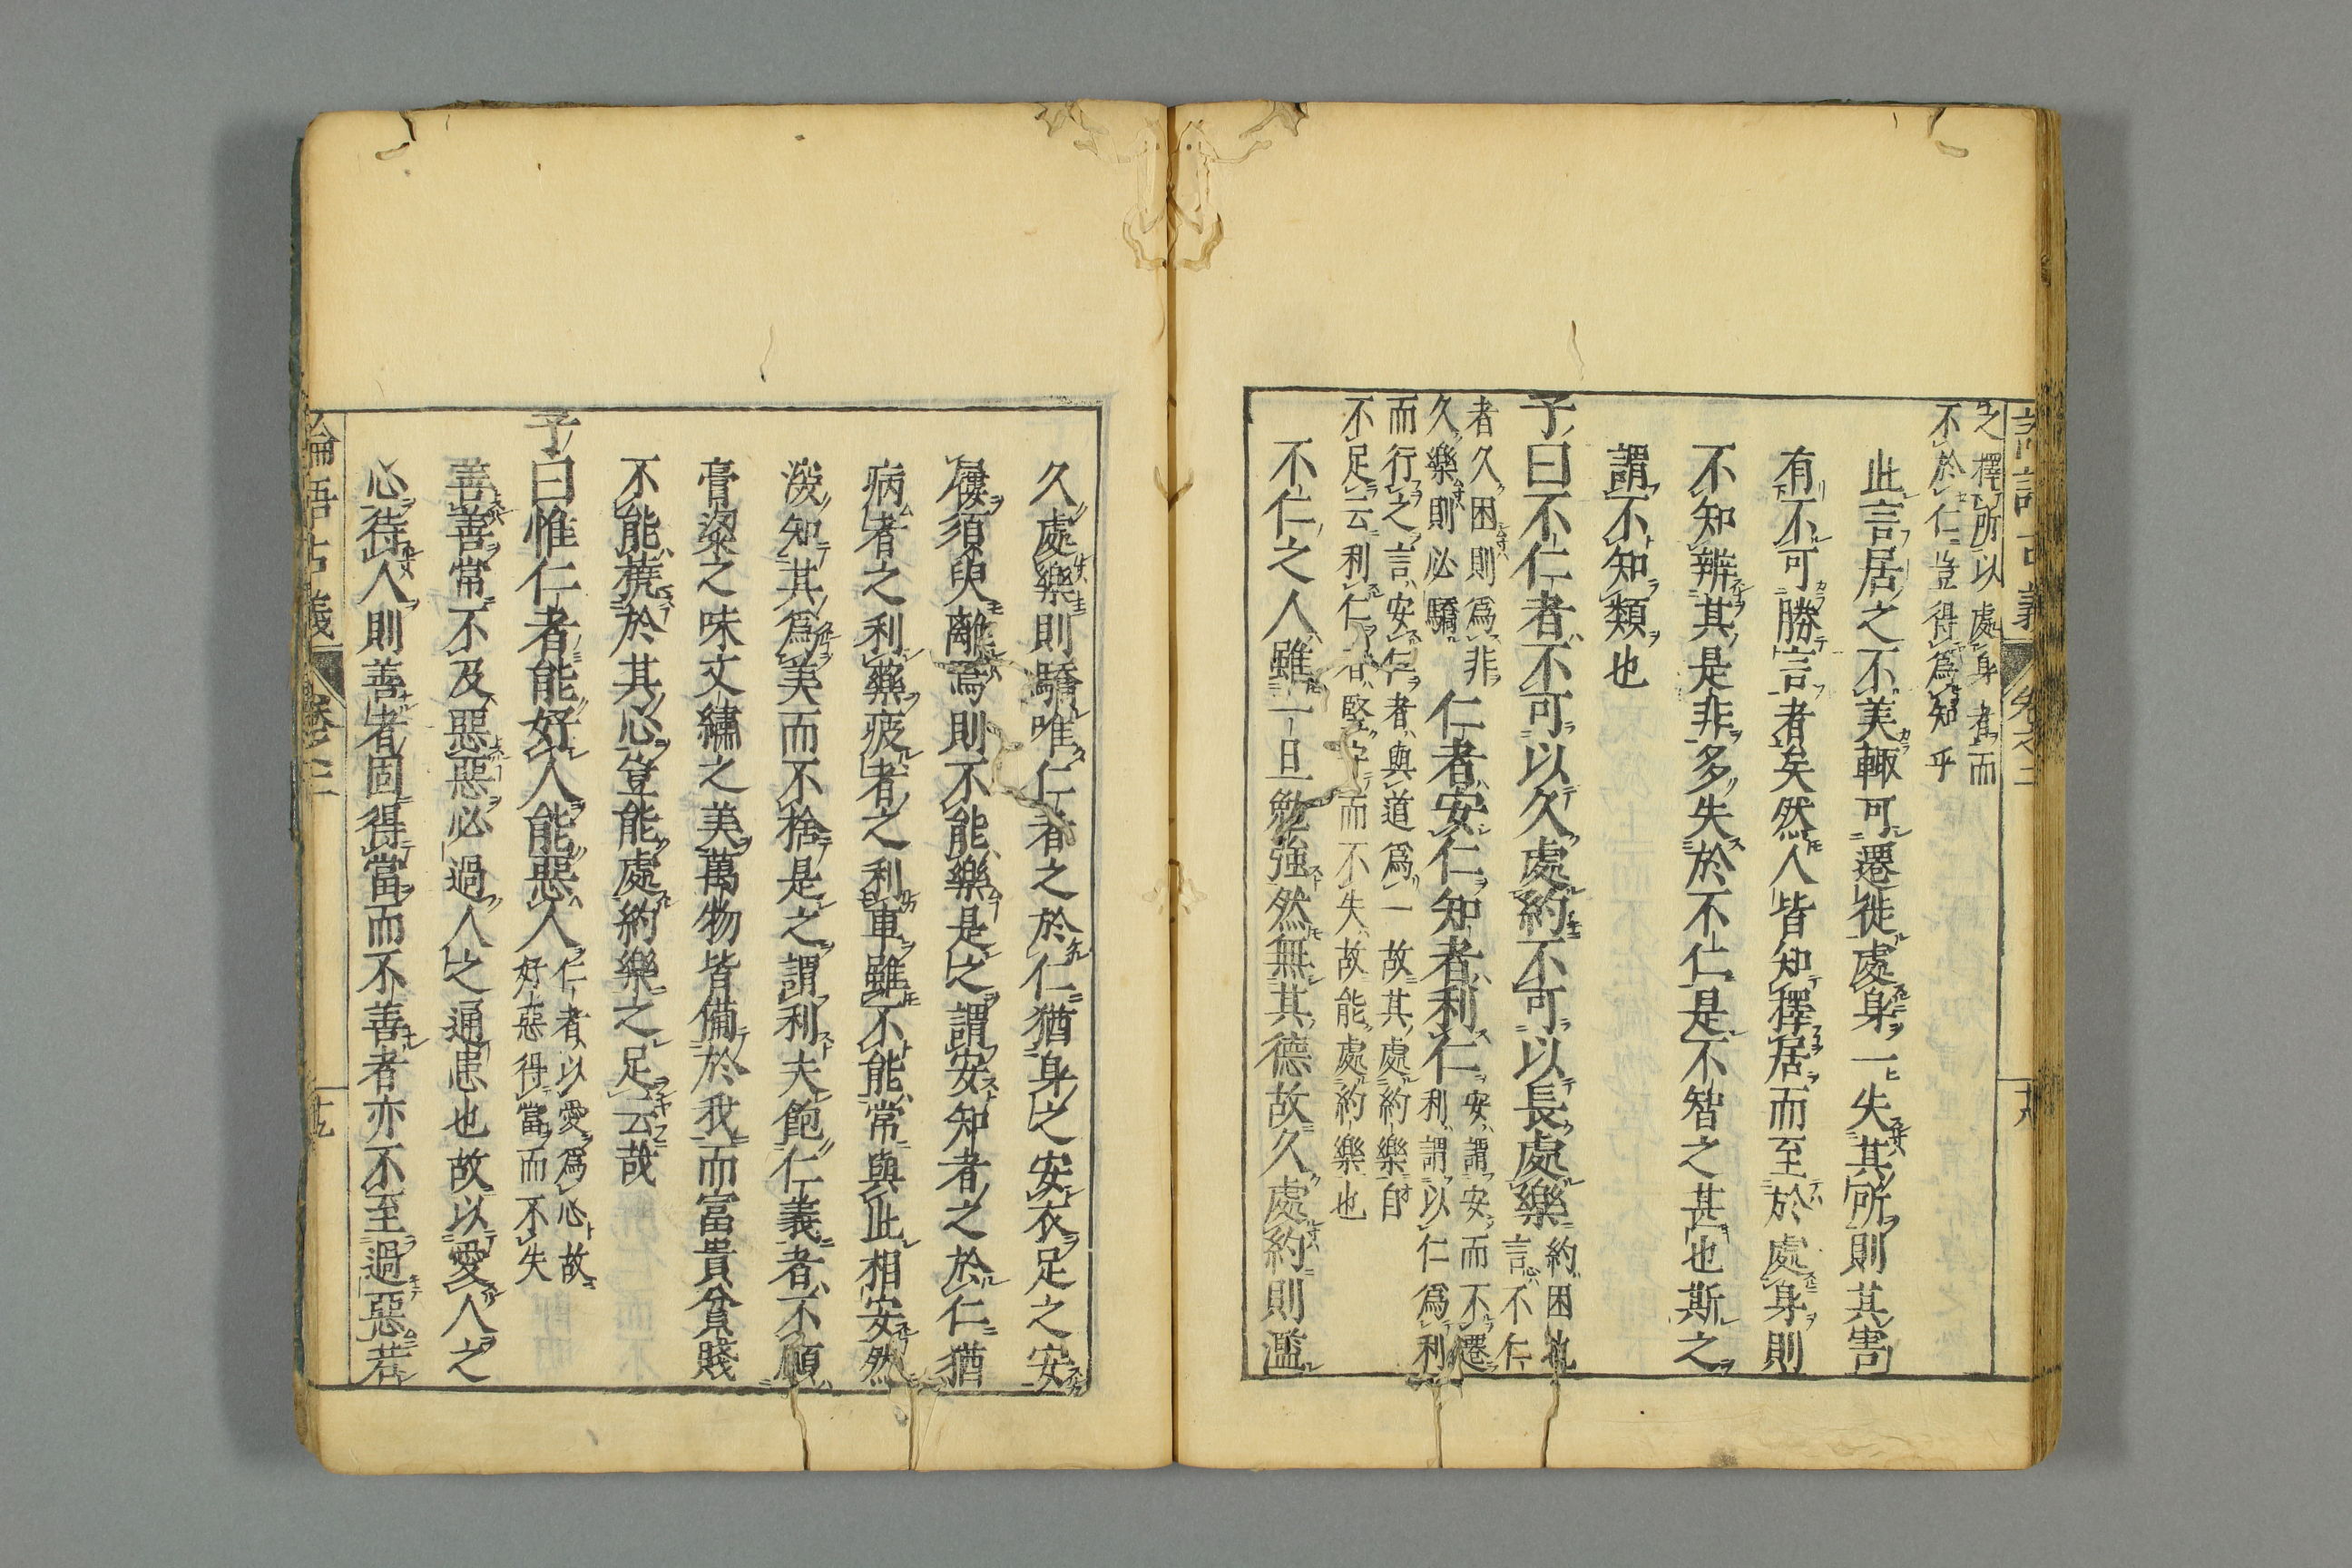 之擇所以處身者而
不於仁豈得爲知乎
此言居之不美輙可遷徙處身一失其所則其害
有不可勝言者矣然人皆知擇居而至於處身則
不知辨其是非多失於不仁是不智之甚也斯之
謂不知類也
子曰不仁者不可以久處約不可以長處樂
約困也
言不仁
者久困則爲非
久樂則必驕
仁者安仁知者利仁
安謂安而不遷
利謂以仁爲利
而行之言安仁者與道爲一故其處約樂自
不足云利仁者堅守而不失故能處約樂也
不仁之人雖一旦勉強然無其德故久處約則濫
久處樂則驕唯仁者之於仁猶身之安衣足之安
屨須臾離焉則不能樂是之謂安知者之於仁猶
病者之利藥疲者之利車雖不能常與此相安然
深知其爲美而不捨是之謂利夫飽仁義者不願
膏粱之味文繡之美萬物皆備於我而富貴貧賤
不能撓於其心豈能處約樂之足云哉
子曰惟仁者能好人能惡人
仁者以愛爲心故
好惡得當而不失
善善常不及惡惡必過人之通患也故以愛人之
心待人則善者固得當而不善者亦不至過惡若
論語古義
卷之二